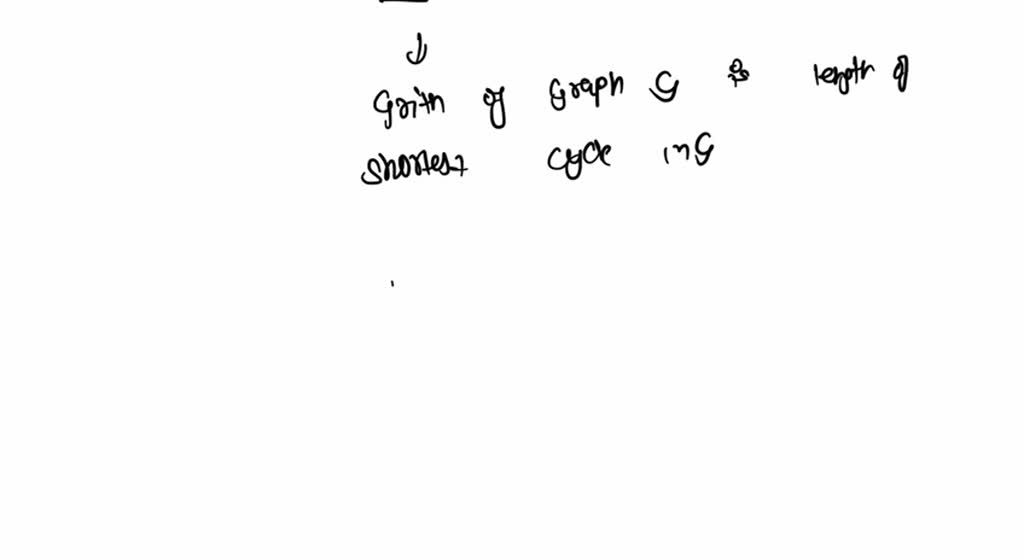 Grith of Graph G is length of
shortest cycle in G